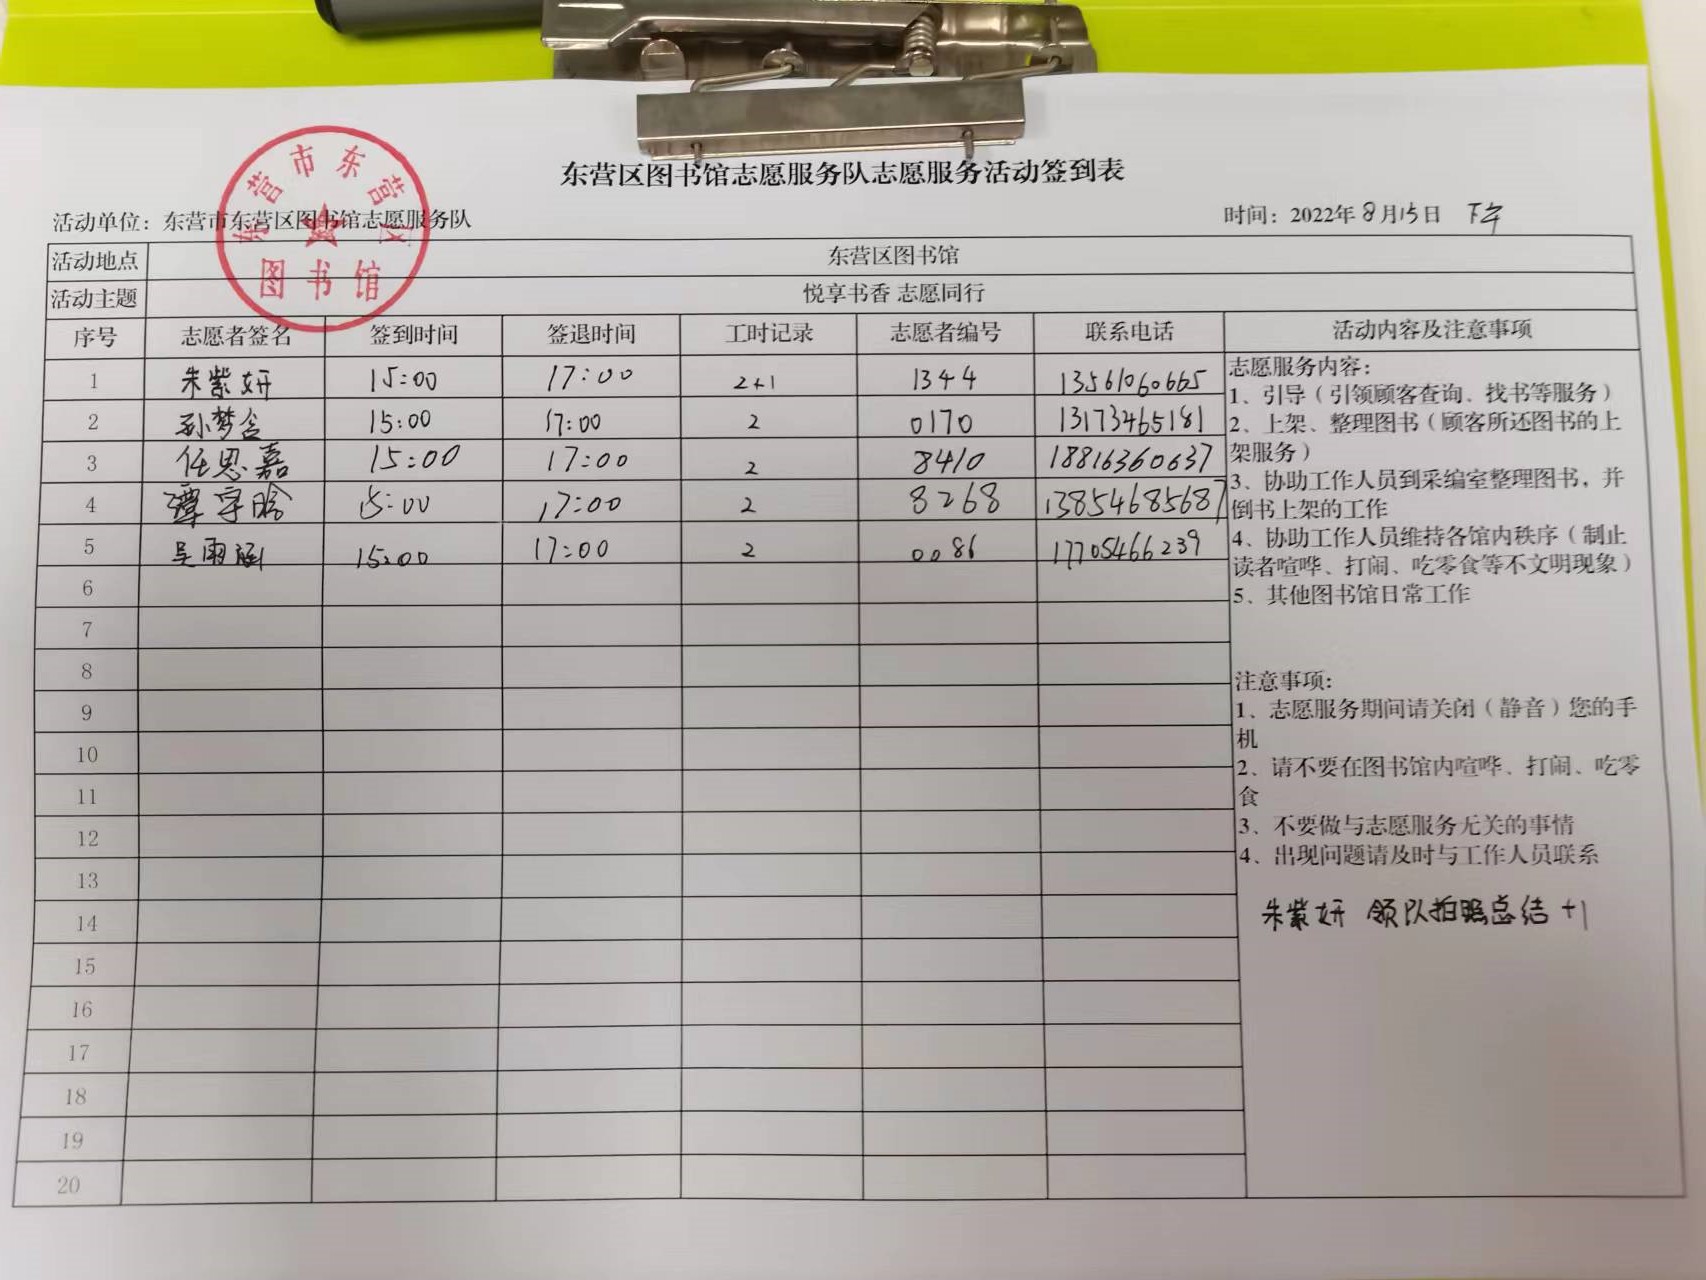 东营市东营区
图书馆
东营区图书馆志愿服务队志愿服务活动签到表
活动单位：东营市东营区图书馆志愿服务队 时间：2022年8月15日 下午
活动地点 东营区图书馆
活动主题 悦享书香 志愿同行
序号 志愿者签名 签到时间 签退时间 工时记录 志愿者编号 联系电话 活动内容及注意事项
1 朱紫妍 15:00 17:00 2+1 1344 13561060665
2 孙梦含 15:00 17:00 2 0170 13173465181
3 任思嘉 15:00 17:00 2 8410 18816360637
4 谭宇晗 15:00 17:00 2 8268 13854685687
5 吴雨涵 15:00 17:00 2 0086 17705466239
6
7
8
9
10
11
12
13
14
15
16
17
18
19
20
志愿服务内容：
1、引导（引领顾客查询、找书等服务）
2、上架、整理图书（顾客所还图书的上
架服务）
3、协助工作人员到采编室整理图书，并
倒书上架的工作
4、协助工作人员维持各馆内秩序（制止
读者喧哗、打闹、吃零食等不文明现象）
5、其他图书馆日常工作
注意事项：
1、志愿服务期间请关闭（静音）您的手
机
2、请不要在图书馆内喧哗、打闹、吃零
食
3、不要做与志愿服务无关的事情
4、出现问题请及时与工作人员联系
朱紫妍 领队拍照总结 +1